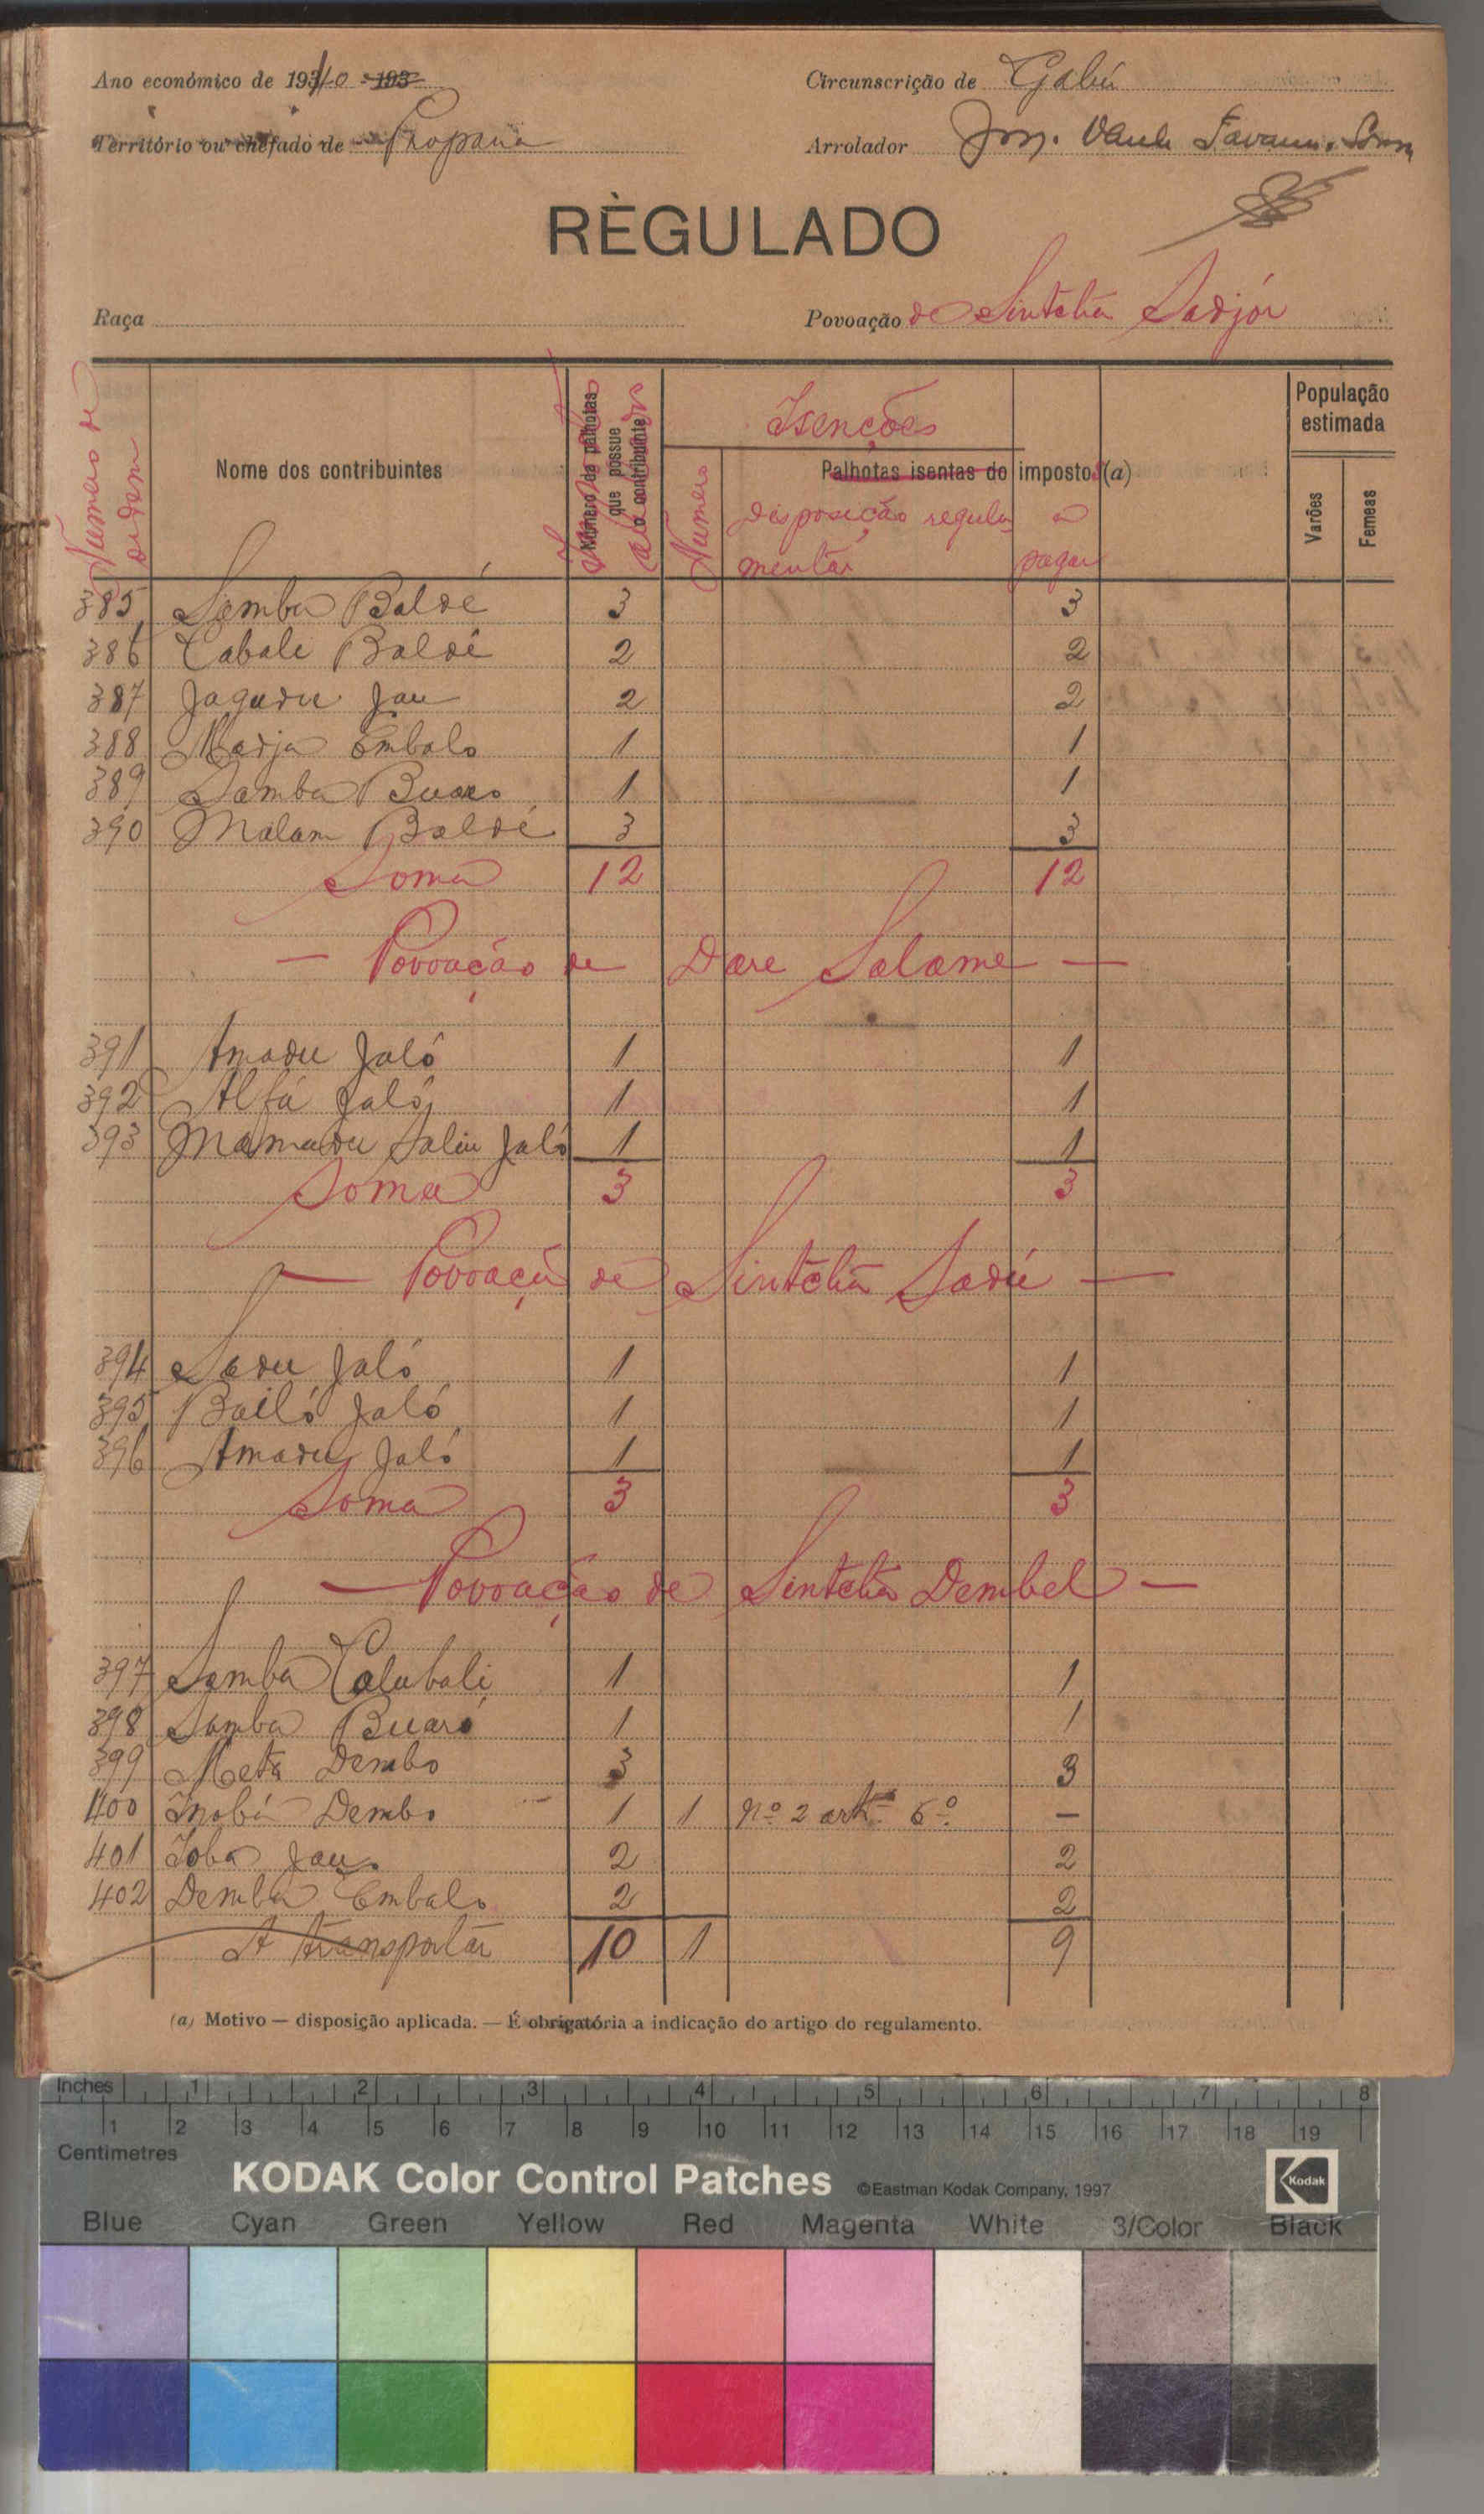 Ano económico de 1940 193
Circunscrição de Gabú
Território ou chefado de Propana
Arrolador
RÈGULADO
Raça
Povoação de Sintchã Sadjór
Numero de ordem
Nome dos contribuintes
Número de palhotas que possue o contribuinte
Isenções
Numero
Palhotas isentas do imposto (a)
disposição regulamentar
a pagar
População estimada
Varões
Femeas
385 Samba Baldé 3 3
386 Cabale Baldé 2 2
387 Jagudu Jau 2 2
388 Madja Embalo 1 1
389 Samba Buaro 1 1
390 Málam Baldé 3 3
Soma 12 12
— Povoação de Dare Salame —
391 Amadu Jaló 1 1
392 Alfá Jaló 1 1
393 Mamadu Saliu Jaló 1 1
Soma 3 3
— Povoação de Sintchã Sadú —
394 Sadu Jaló 1 1
395 Bailó Jaló 1 1
396 Amadu Jaló 1 1
Soma 3 3
— Povoação de Sintchã Dembel —
397 Samba Colubali 1 1
398 Samba Buaró 1 1
399 Meta Dembo 3 3
400 Inobá Dembo 1 1 nº 2 artº 6º —
401 Ioba Jau 2 2
402 Demba Embalo 2 2
A transportar 10 1 9
(a) Motivo — disposição aplicada. — É obrigatória a indicação do artigo do regulamento.
Inches 1 2 3 4 5 6 7 8
1 2 3 4 5 6 7 8 9 10 11 12 13 14 15 16 17 18 19
Centimetres
KODAK Color Control Patches ©Eastman Kodak Company, 1997 Kodak
Blue Cyan Green Yellow Red Magenta White 3/Color Black